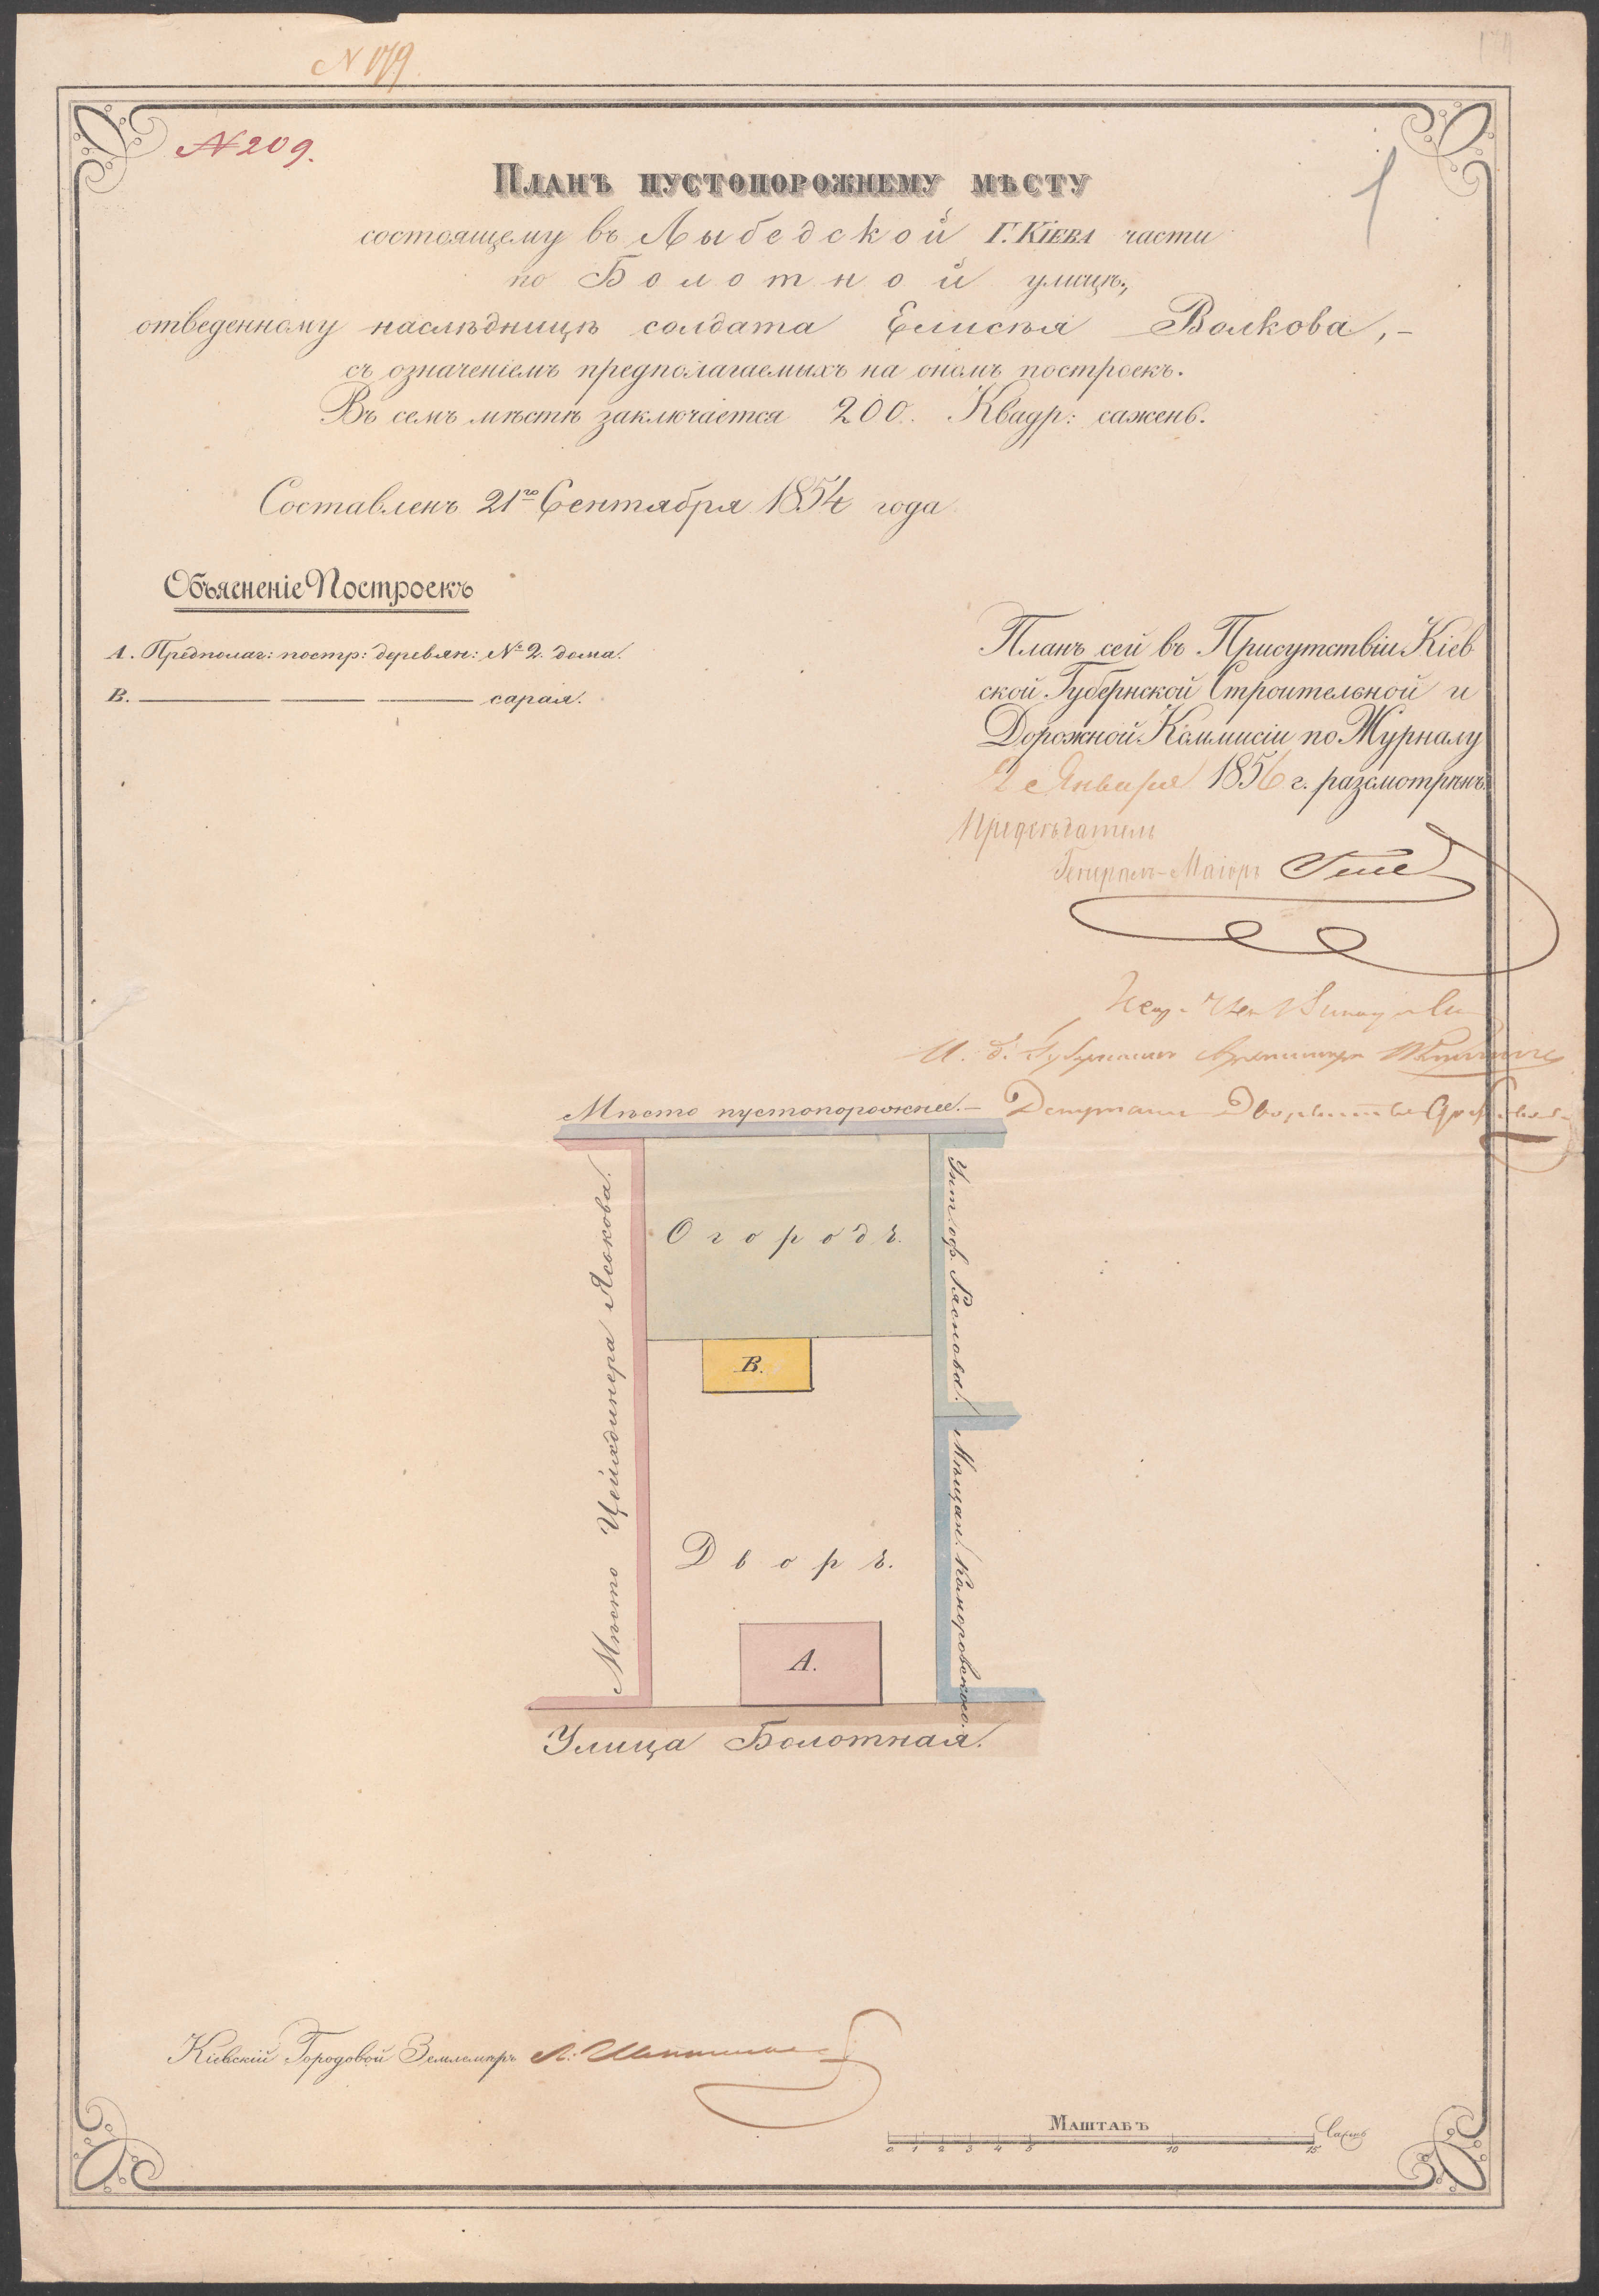 N 179.
N 209.
1
Планъ пустопорожнему мѣсту
состоящему въ Лыбедской Г. Кіева части
по Болотной улицѣ,
отведенному наслѣдницѣ солдата Елисѣя Волкова, –
съ означеніемъ предполагаемыхъ на ономъ построекъ.
Въ семъ мѣстѣ заключается 200. Квадр: сажень.
Составленъ 21го Сентября 1854 года
Объясненіе Построекъ
А. Предполаг: постр: деревян: № 2. дома.
В. ——— ——— ——— сарая.
Планъ сей въ Присутствіи Кіев
ской Губернской Строительной и
Дорожной Коммисіи по Журналу
2 Января 1856 г. разсмотрѣнъ.
Предсѣдатель
Генералъ-Маіоръ
И. д. Губернскаго Архитектора
Депутатъ Дворянства
Мѣсто пустопорожнее. –
Мѣсто Цейхдинера Яськова.
Огородъ.
Унт: оф. Ряснова.
В.
Мѣщан. Коморовскаго.
Дворъ.
А.
Улица Болотная.
Кіевскій Городовой Землемѣръ
Маштабъ
0 1 2 3 4 5 10 15 Сажень